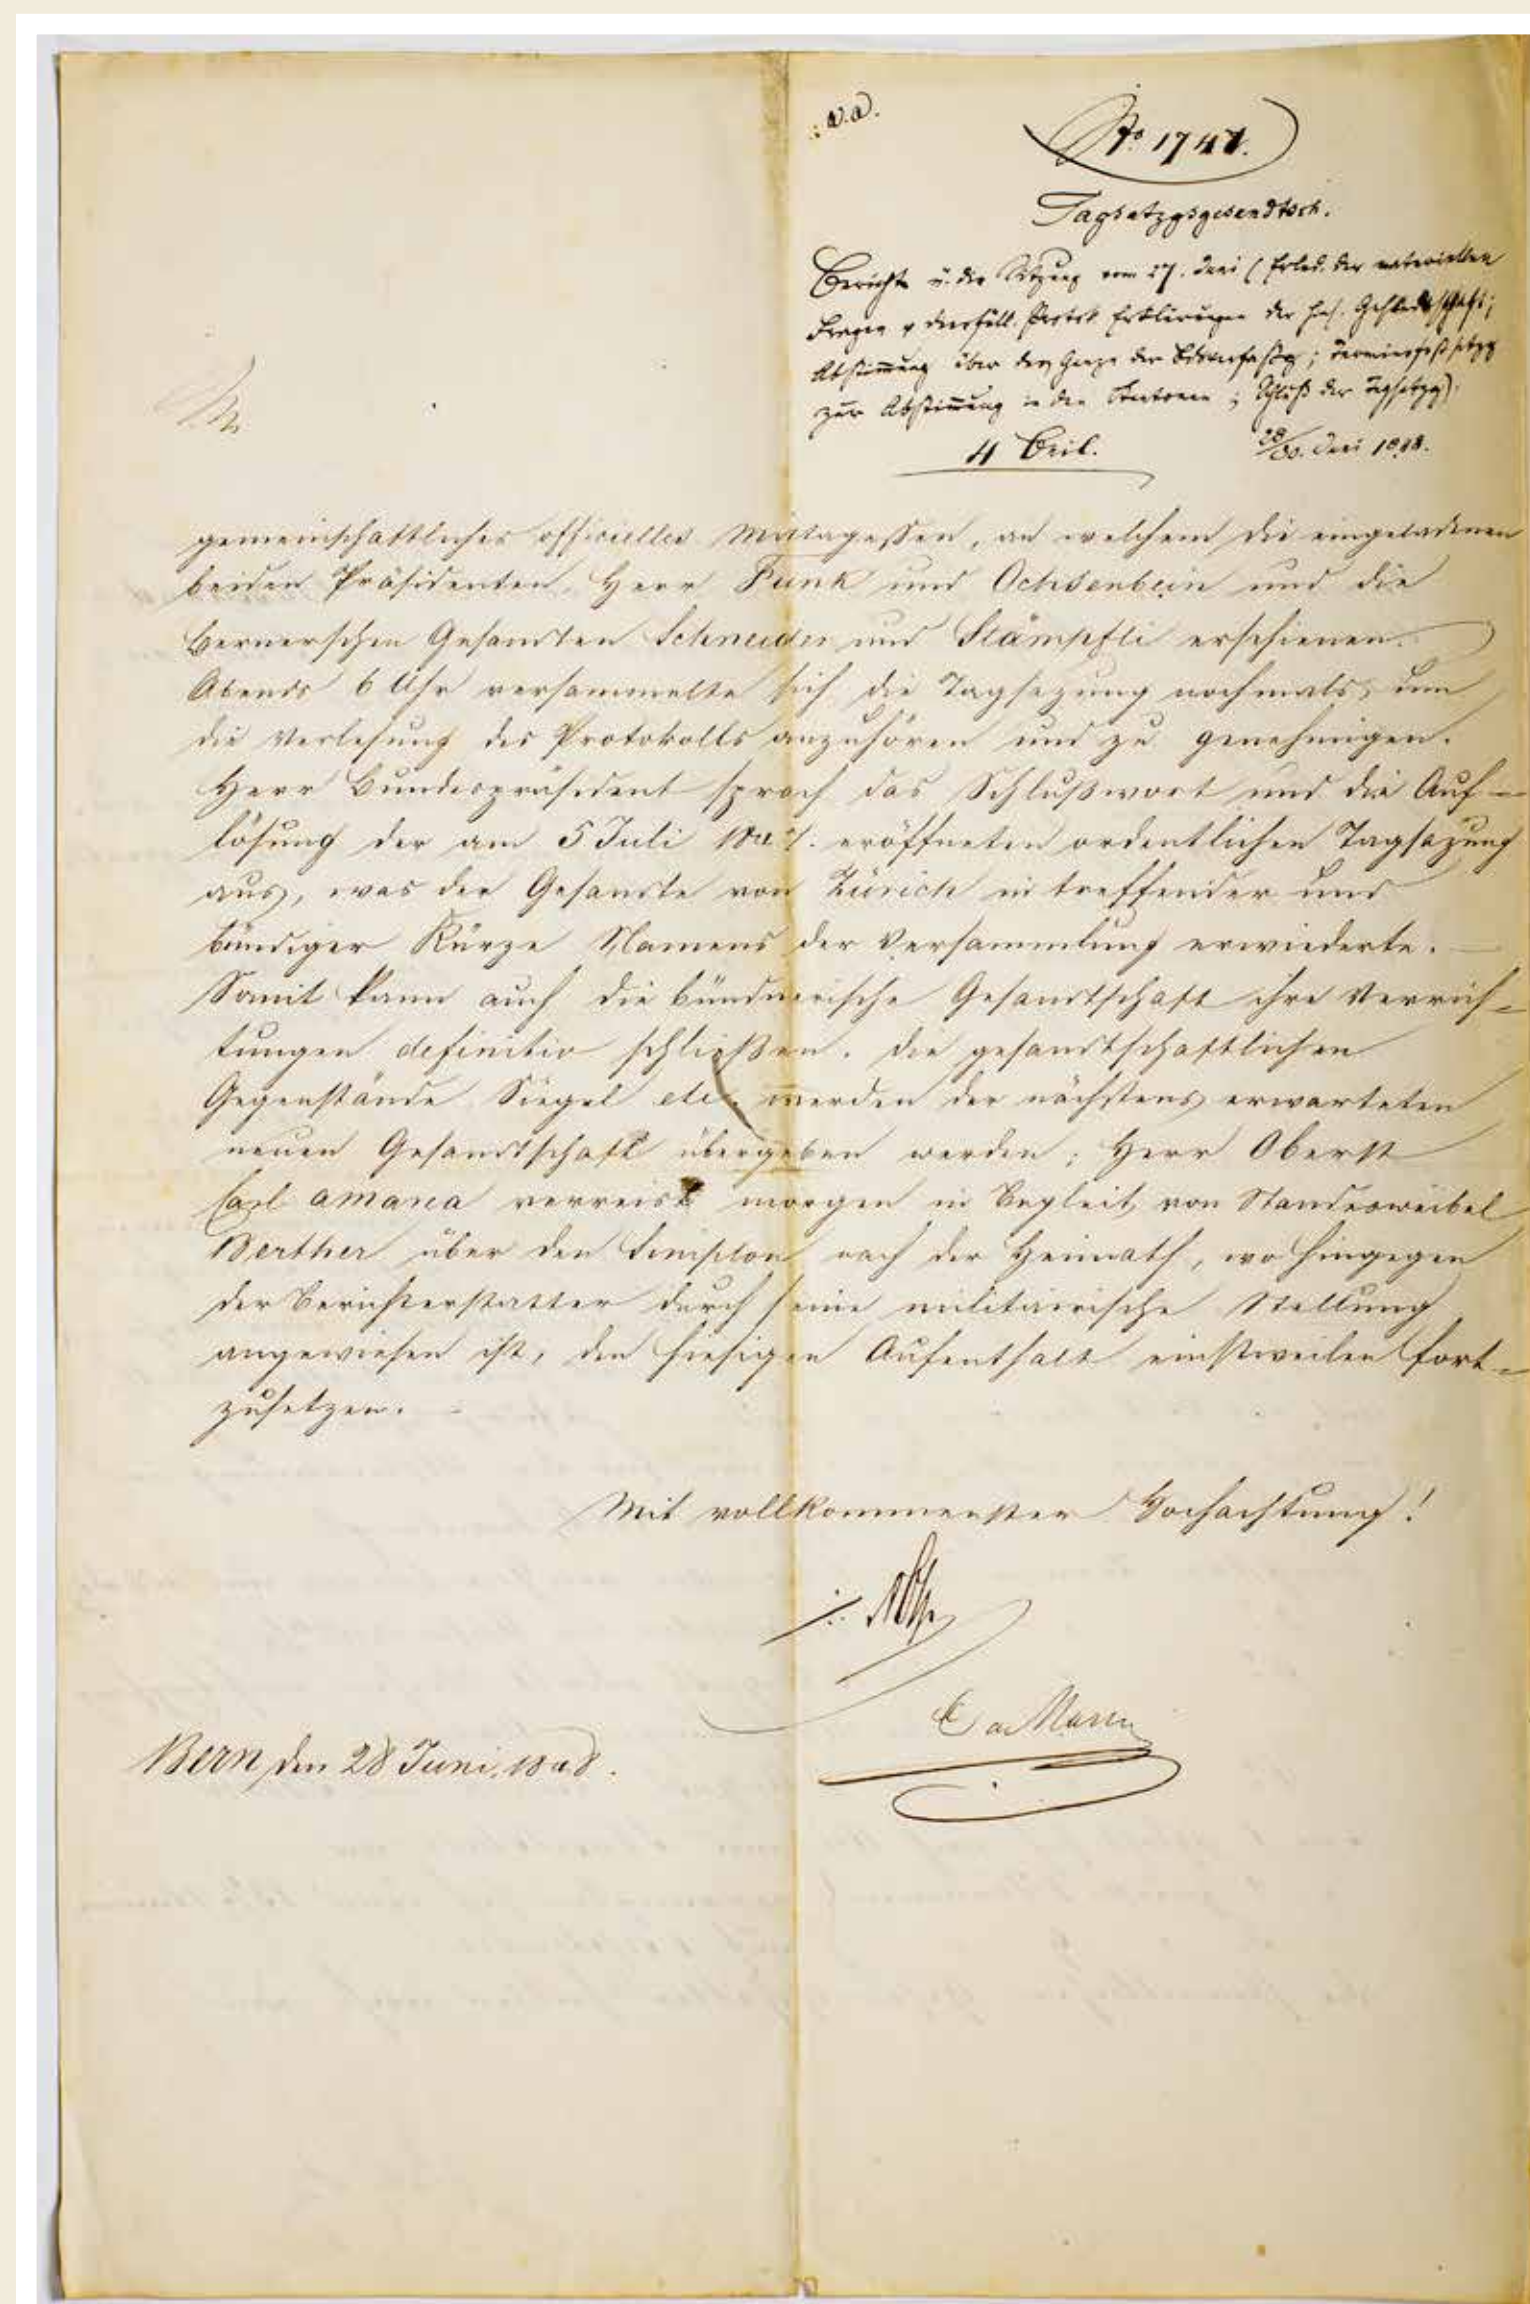 v.a.
No 1747.
Tagsatzgsgesendtsch.
Bericht ü. die Sitzung vom 27. Juni (Erled. der materiellen
Fragen & diesfäll. Protok Erklärungen der
Abstimmung über das Ganze der Bdsverfassg; Terminsfestsetzg
zur Abstimmung in den Kantonen; Schluß der Tagsatzg).
4 Beil. 28/30. Juni 1848.
gemeinschaftliches officielles Mittagessen, an welchem die eingeladenen
beiden Präsidenten, Herr Funk und Ochsenbein und die
Bernerschen Gesandten Schneider und Stämpfli erschienen.
Abends 6 Uhr versammelte sich die Tagsazung nochmals, um
die Verlesung des Protokolls anzuhören und zu genehmigen.
Herr Bundespräsident sprach das Schlußwort und die Auf-
lösung der am 5 Juli 1847. eröffneten ordentlichen Tagsazung
aus, was der Gesandte von Zürich in treffender und
bündiger Kürze Namens der Versammlung erwiederte. —
Somit kann auch die bündnerische Gesandtschaft ihre Verrich-
tungen definitiv schließen. Die gesandtschaftlichen
Gegenstände Siegel etc. werden der nächstens erwarteten
neuen Gesandtschaft übergeben werden; Herr Oberst
Carl amarca verreist morgen in Begleit von Standesweibel
Berther über den Simplon nach der Heimath, wo hingegen
der Berichterstatter durch seine militairische Stellung
angewiesen ist, den hiesigen Aufenthalt einstweilen fort-
zusetzen. -
Mit vollkommenster Hochachtung!
C a Marca
Bern den 28 Juni 1848.